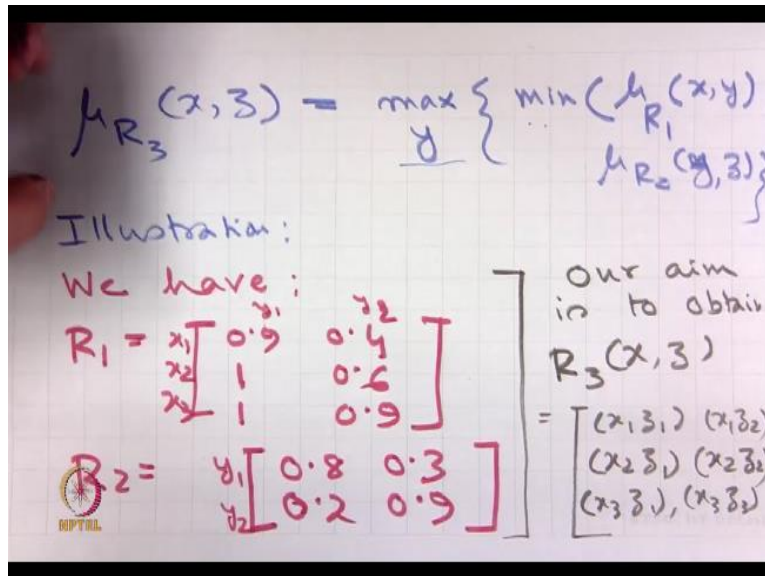 μ_R₃ (x, z) = max_y { min ( μ_R₁ (x, y)
μ_R₂ (y, z) }
Illustration:
We have:
y₁ y₂
R₁ = x₁ [ 0.9 0.4 ]
x₂ 1 0.6
x₃ 1 0.9
R₂ = y₁ [ 0.8 0.3 ]
y₂ 0.2 0.9
our aim
is to obtain
R₃ (x, z)
= [ (x₁ z₁) (x₁ z₂)
(x₂ z₁) (x₂ z₂)
(x₃ z₁), (x₃ z₂)
NPTEL